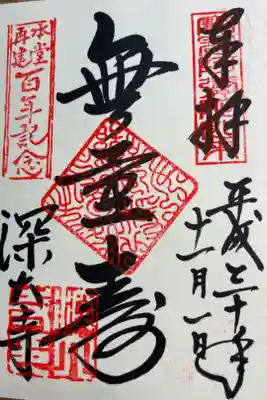 奉拝
平成三十年
十一月一日
無量寿
本堂再建
百年記念
深大寺